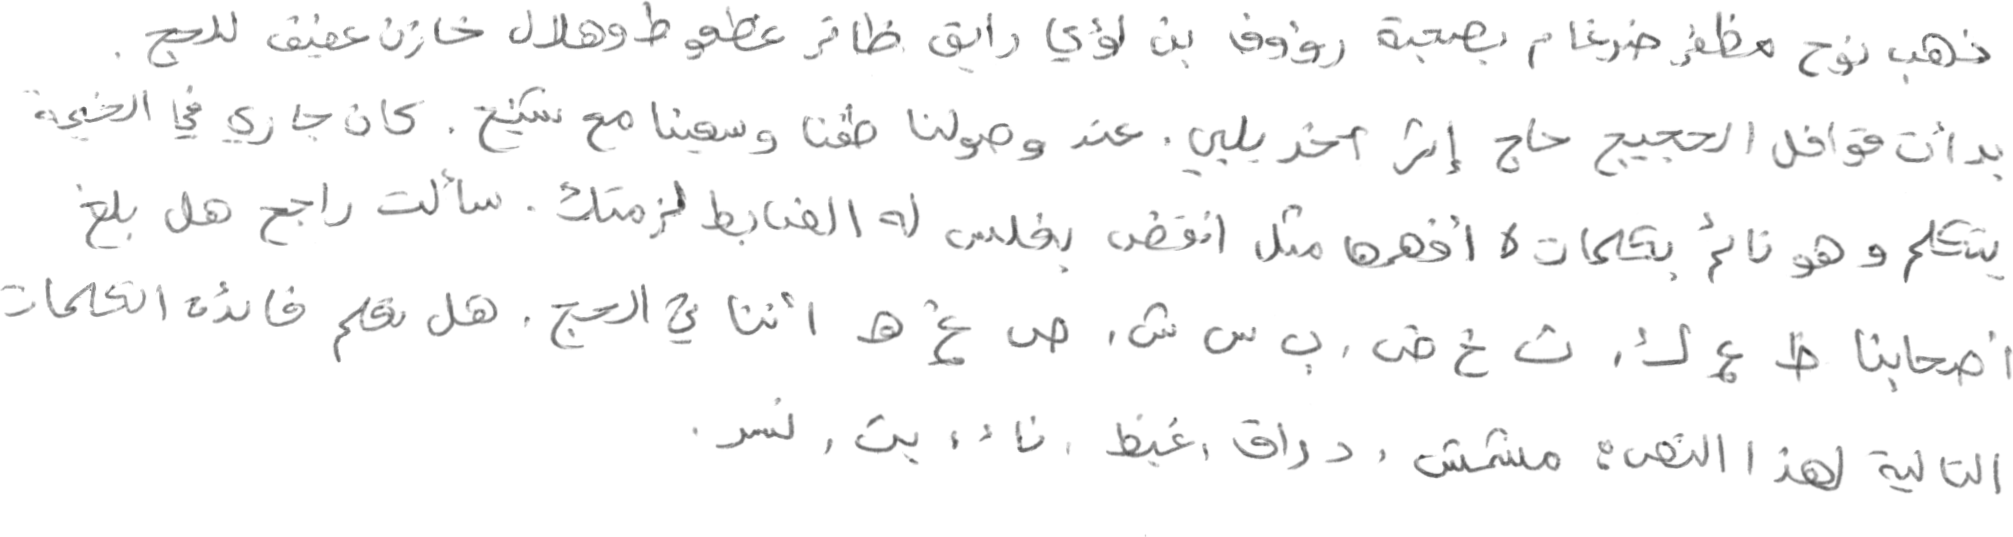 ذهب نوح مظفر ضرغام بصحبة رؤوف بن لؤي رايق ظافر عظعوط وهلال خازن عفيف للحج .
بدأت قوافل الحجيج حاج إثر آخذ يلبي . عند وصولنا طفنا وسعينا مع شيخ . كان جاري في الخيمة
يتكلم وهو نائم بكلمات لا أفهمها مثل انقض بغلس له الضابط لزمتك . سألت راجح هل بلغ
أصحابنا ظ ع ك ، ث خ ض ، ب س ش ، ص غ ه أننا في الحج . هل تعلم فائدة الكلمات
التالية لهذا النص : مشمش ، دراق ، غيظ ، ناء ، يث ، نسر .